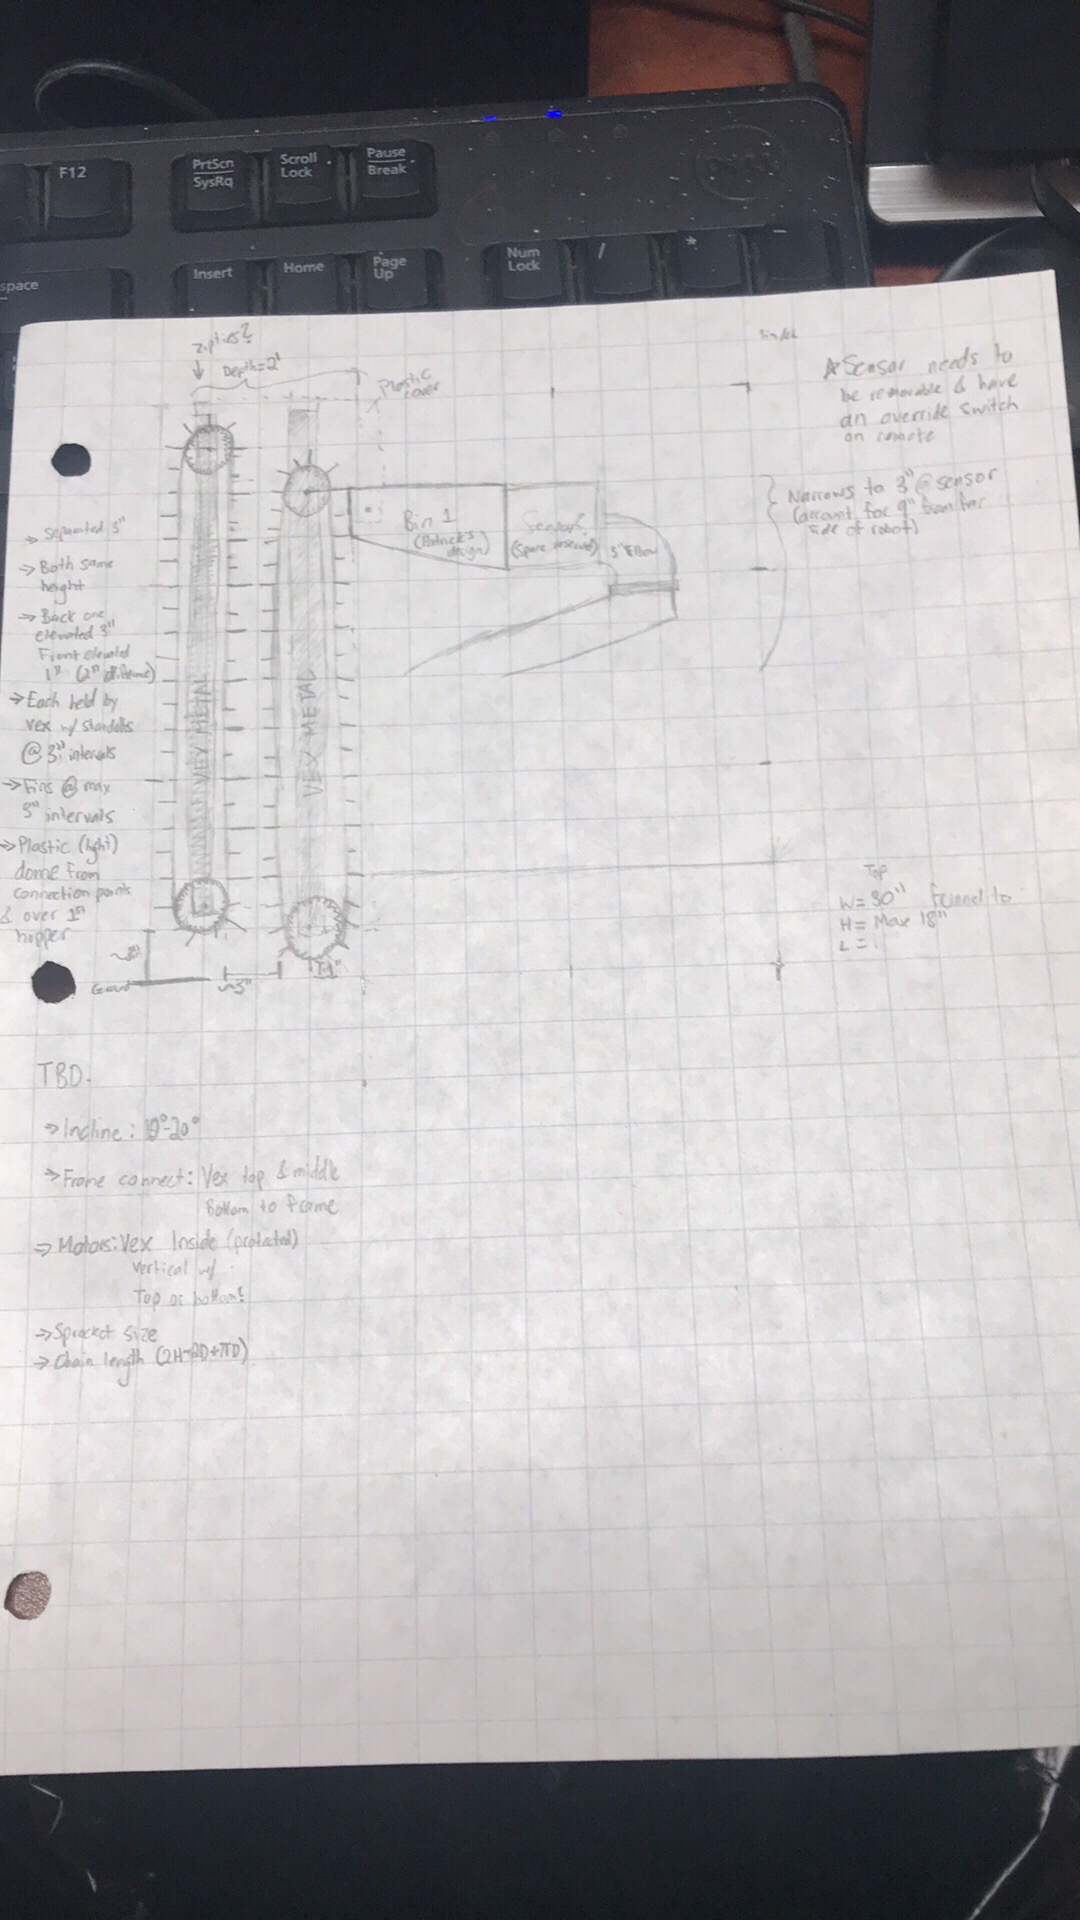 F12
PrtScn
SysRq
Scroll
Lock
Pause
Break
DELL
space
Insert
Home
Page
Up
Num
Lock
/
*
-
zipties?
Depth=2'
Plastic
cover
☆Sensor needs to
be removable & have
an override switch
on remote
Narrows to 3" @ sensor
(account for 9" from far
side of robot)
Bin 1
(Patrick's
design)
Sensor
(Space reserved)
3" Elbow
→ separated 3"
→ Both same
height
→ Back one
elevated 3"
Front elevated
1" (2" difference)
→ Each held by
vex w/ standoffs
@ 3" intervals
→ Fins @ max
3" intervals
→ Plastic (light)
dome from
connection points
& over 1st
hopper
VEX METAL
VEX METAL
~3"
Ground
~3"
1"
Top
W=30" funnel to
H= Max 18"
L=
TBD.
→ Incline: 10°-20°
→ Frame connect: Vex top & middle
Bottom to frame
→ Motors: Vex Inside (protected)
Vertical w/
Top or bottom?
→ Sprocket size
→ Chain length (2H-2D+πD)